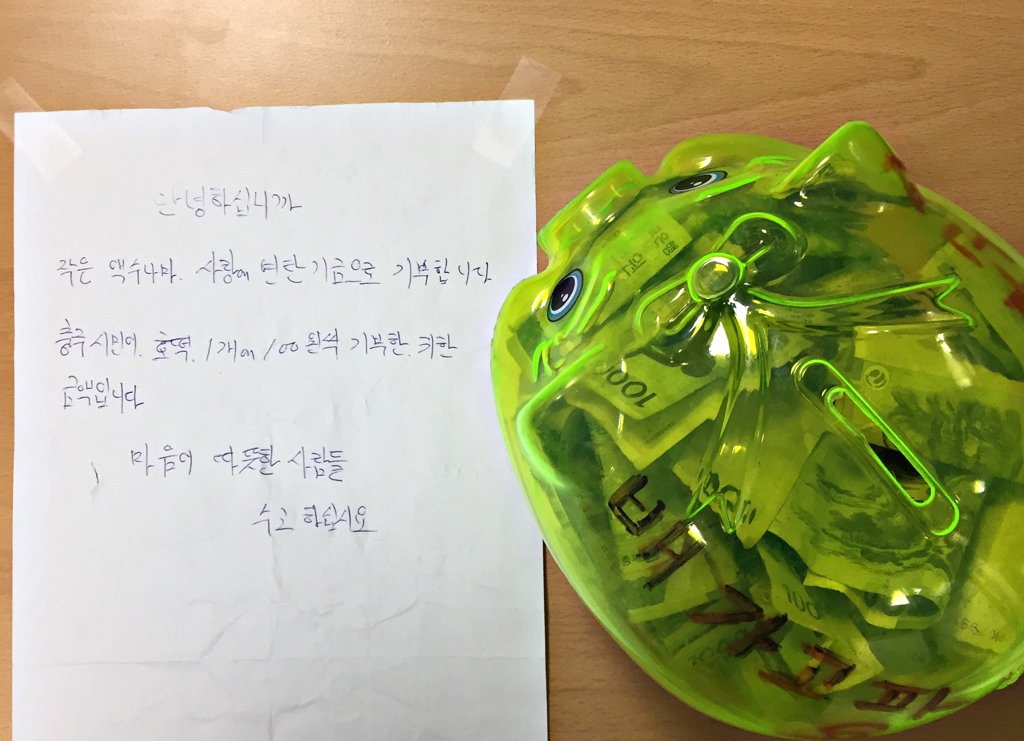 안녕하십니까
작은 액수나마. 사랑에 연탄 기금으로 기부합니다
충주 시민이. 호떡. 1개에 100원씩 기부한. 귀한
금액입니다
마음이 따뜻한 사람들
수고 하십시요
배 가 고 파
1000